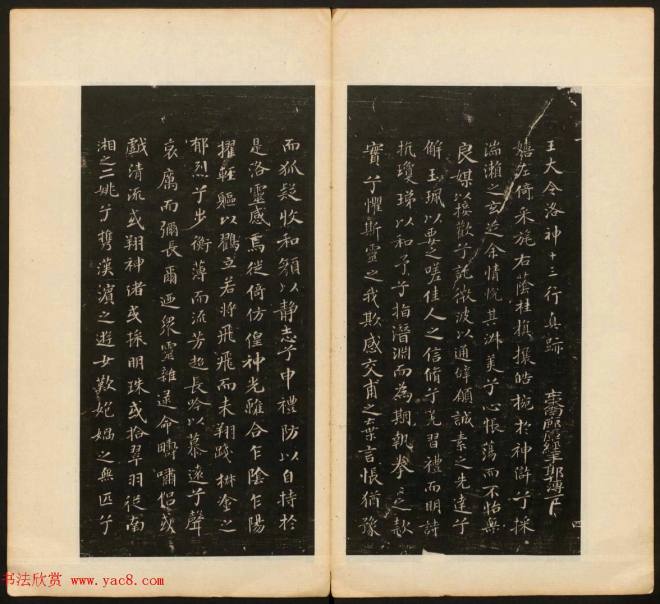 王大令洛神十三行真跡
嬉左倚采旄右蔭桂旗攘皓捥於神滸兮採
湍瀨之玄芝余情悅其淑美兮心振蕩而不怡無
良媒以接歡兮託微波以通辭願誠素之先達兮
解玉珮以要之嗟佳人之信脩兮羌習禮而明詩
抗瓊珶以和予兮指潛淵而為期執拳々之款
實兮懼斯靈之我欺感交甫之棄言悵猶豫
而狐疑收和顏以静志兮申禮防以自持於
是洛靈感焉徙倚仿偟神光離合乍陰乍陽
擢輕軀以鶴立若將飛飛而未翔踐椒塗之
郁烈兮步衡薄而流芳超長吟以慕遠兮聲
哀厲而彌長爾迺眾靈雜遝命疇嘯侶或
戲清流或翔神渚或採明珠或拾翠羽從南
湘之二姚兮攜漢濱之遊女歎妃媧之無匹兮
书法欣赏 www.yac8.com